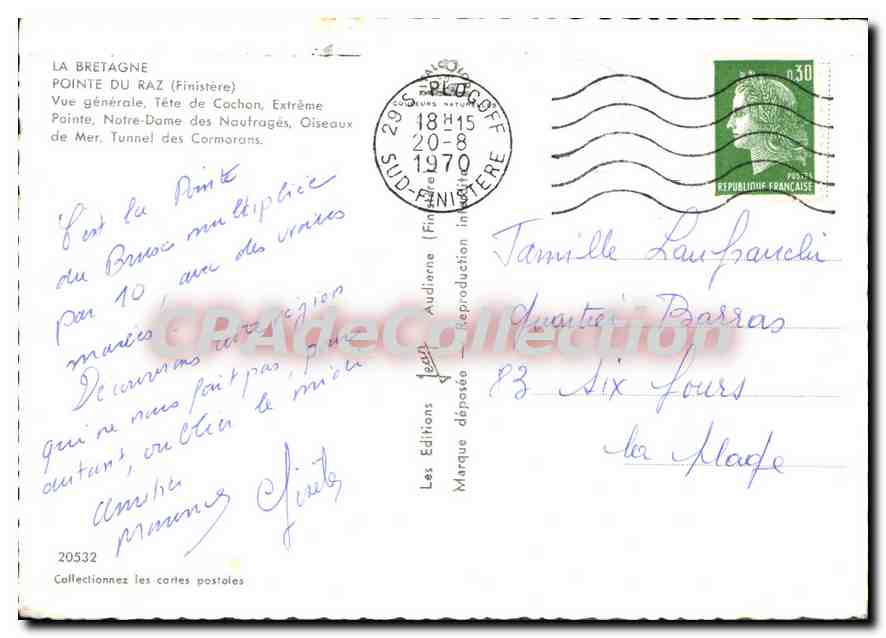 LA BRETAGNE
POINTE DU RAZ (Finistère)
Vue générale, Tête de Cochon, Extrême
Pointe, Notre-Dame des Naufragés, Oiseaux
de Mer, Tunnel des Cormorans.
C'est la Pointe
du Brusc multipliée
par 10 avec des vraies
marées!
Découvrons cette région
qui ne nous fait pas, pour
autant, oublier le midi
Amitiés
Gisèle
20532
Collectionnez les cartes postales
COULEURS NATURELLES
Les Editions Jean Audierne (Finistère)
Marque déposée — Reproduction interdite
29 S. PLOGOFF
18H15
20-8
1970
SUD-FINISTERE
0,30
POSTES
REPUBLIQUE FRANÇAISE
Famille Lanfranchi
Quartier Barras
83 Six Fours
la plage
CPAdeCollection